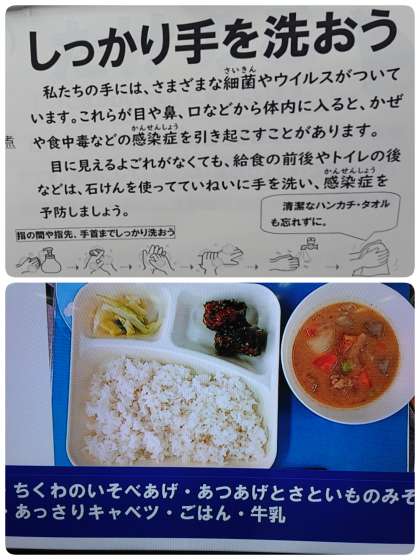 しっかり手を洗おう
私たちの手には、さまざまな細菌やウイルスがついて
います。これらが目や鼻、口などから体内に入ると、かぜ
や食中毒などの感染症を引き起こすことがあります。
目に見えるよごれがなくても、給食の前後やトイレの後
などは、石けんを使ってていねいに手を洗い、感染症を
予防しましょう。
清潔なハンカチ・タオル
も忘れずに。
指の間や指先、手首までしっかり洗おう
ちくわのいそべあげ・あつあげとさといものみそ
・あっさりキャベツ・ごはん・牛乳